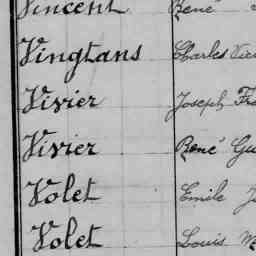 Vincent René
Vingtans Charles
Vivier Joseph
Vivier René
Volet Emile
Volet Louis